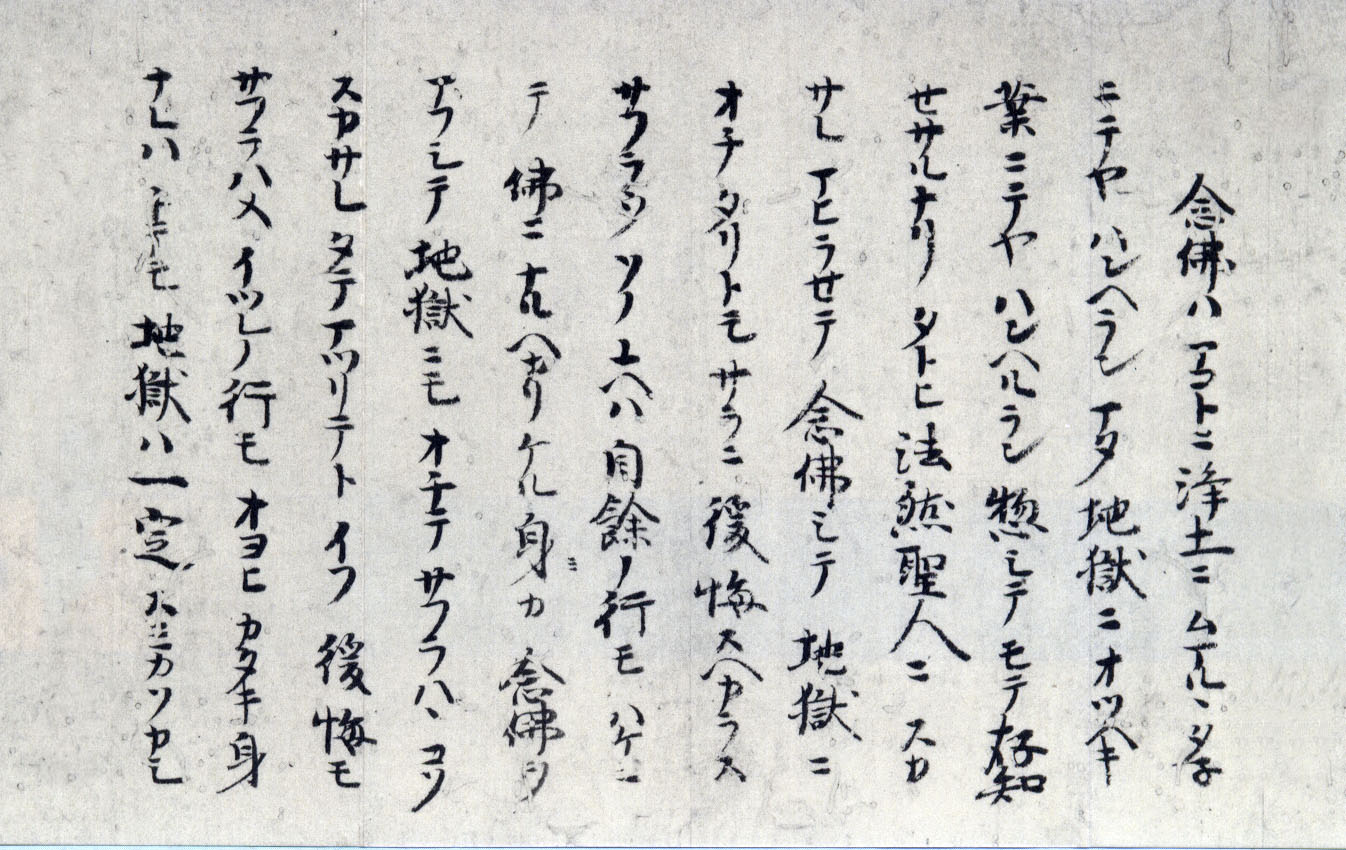 念佛ハマコトニ浄土ニムマルヽタネ
ニテヤハンヘランマタ地獄ニオツヘキ
業ニテヤハンヘルラン惣シテモテ存知
セサルナリタトヒ法然聖人ニスカ
サレマヒラセテ念佛シテ地獄ニ
オチタリトモサラニ後悔スヘカラス
サフラウソノユヘハ自餘ノ行モハケミ
テ佛ニナルヘカリケル身カ念佛ヲ
マフシテ地獄ニモオチテサフラハヽコソ
スカサレタテマツリテトイフ後悔モ
サフラハメイツレノ行モオヨヒカタキ身
ナレハトテモ地獄ハ一定スミカソカシ